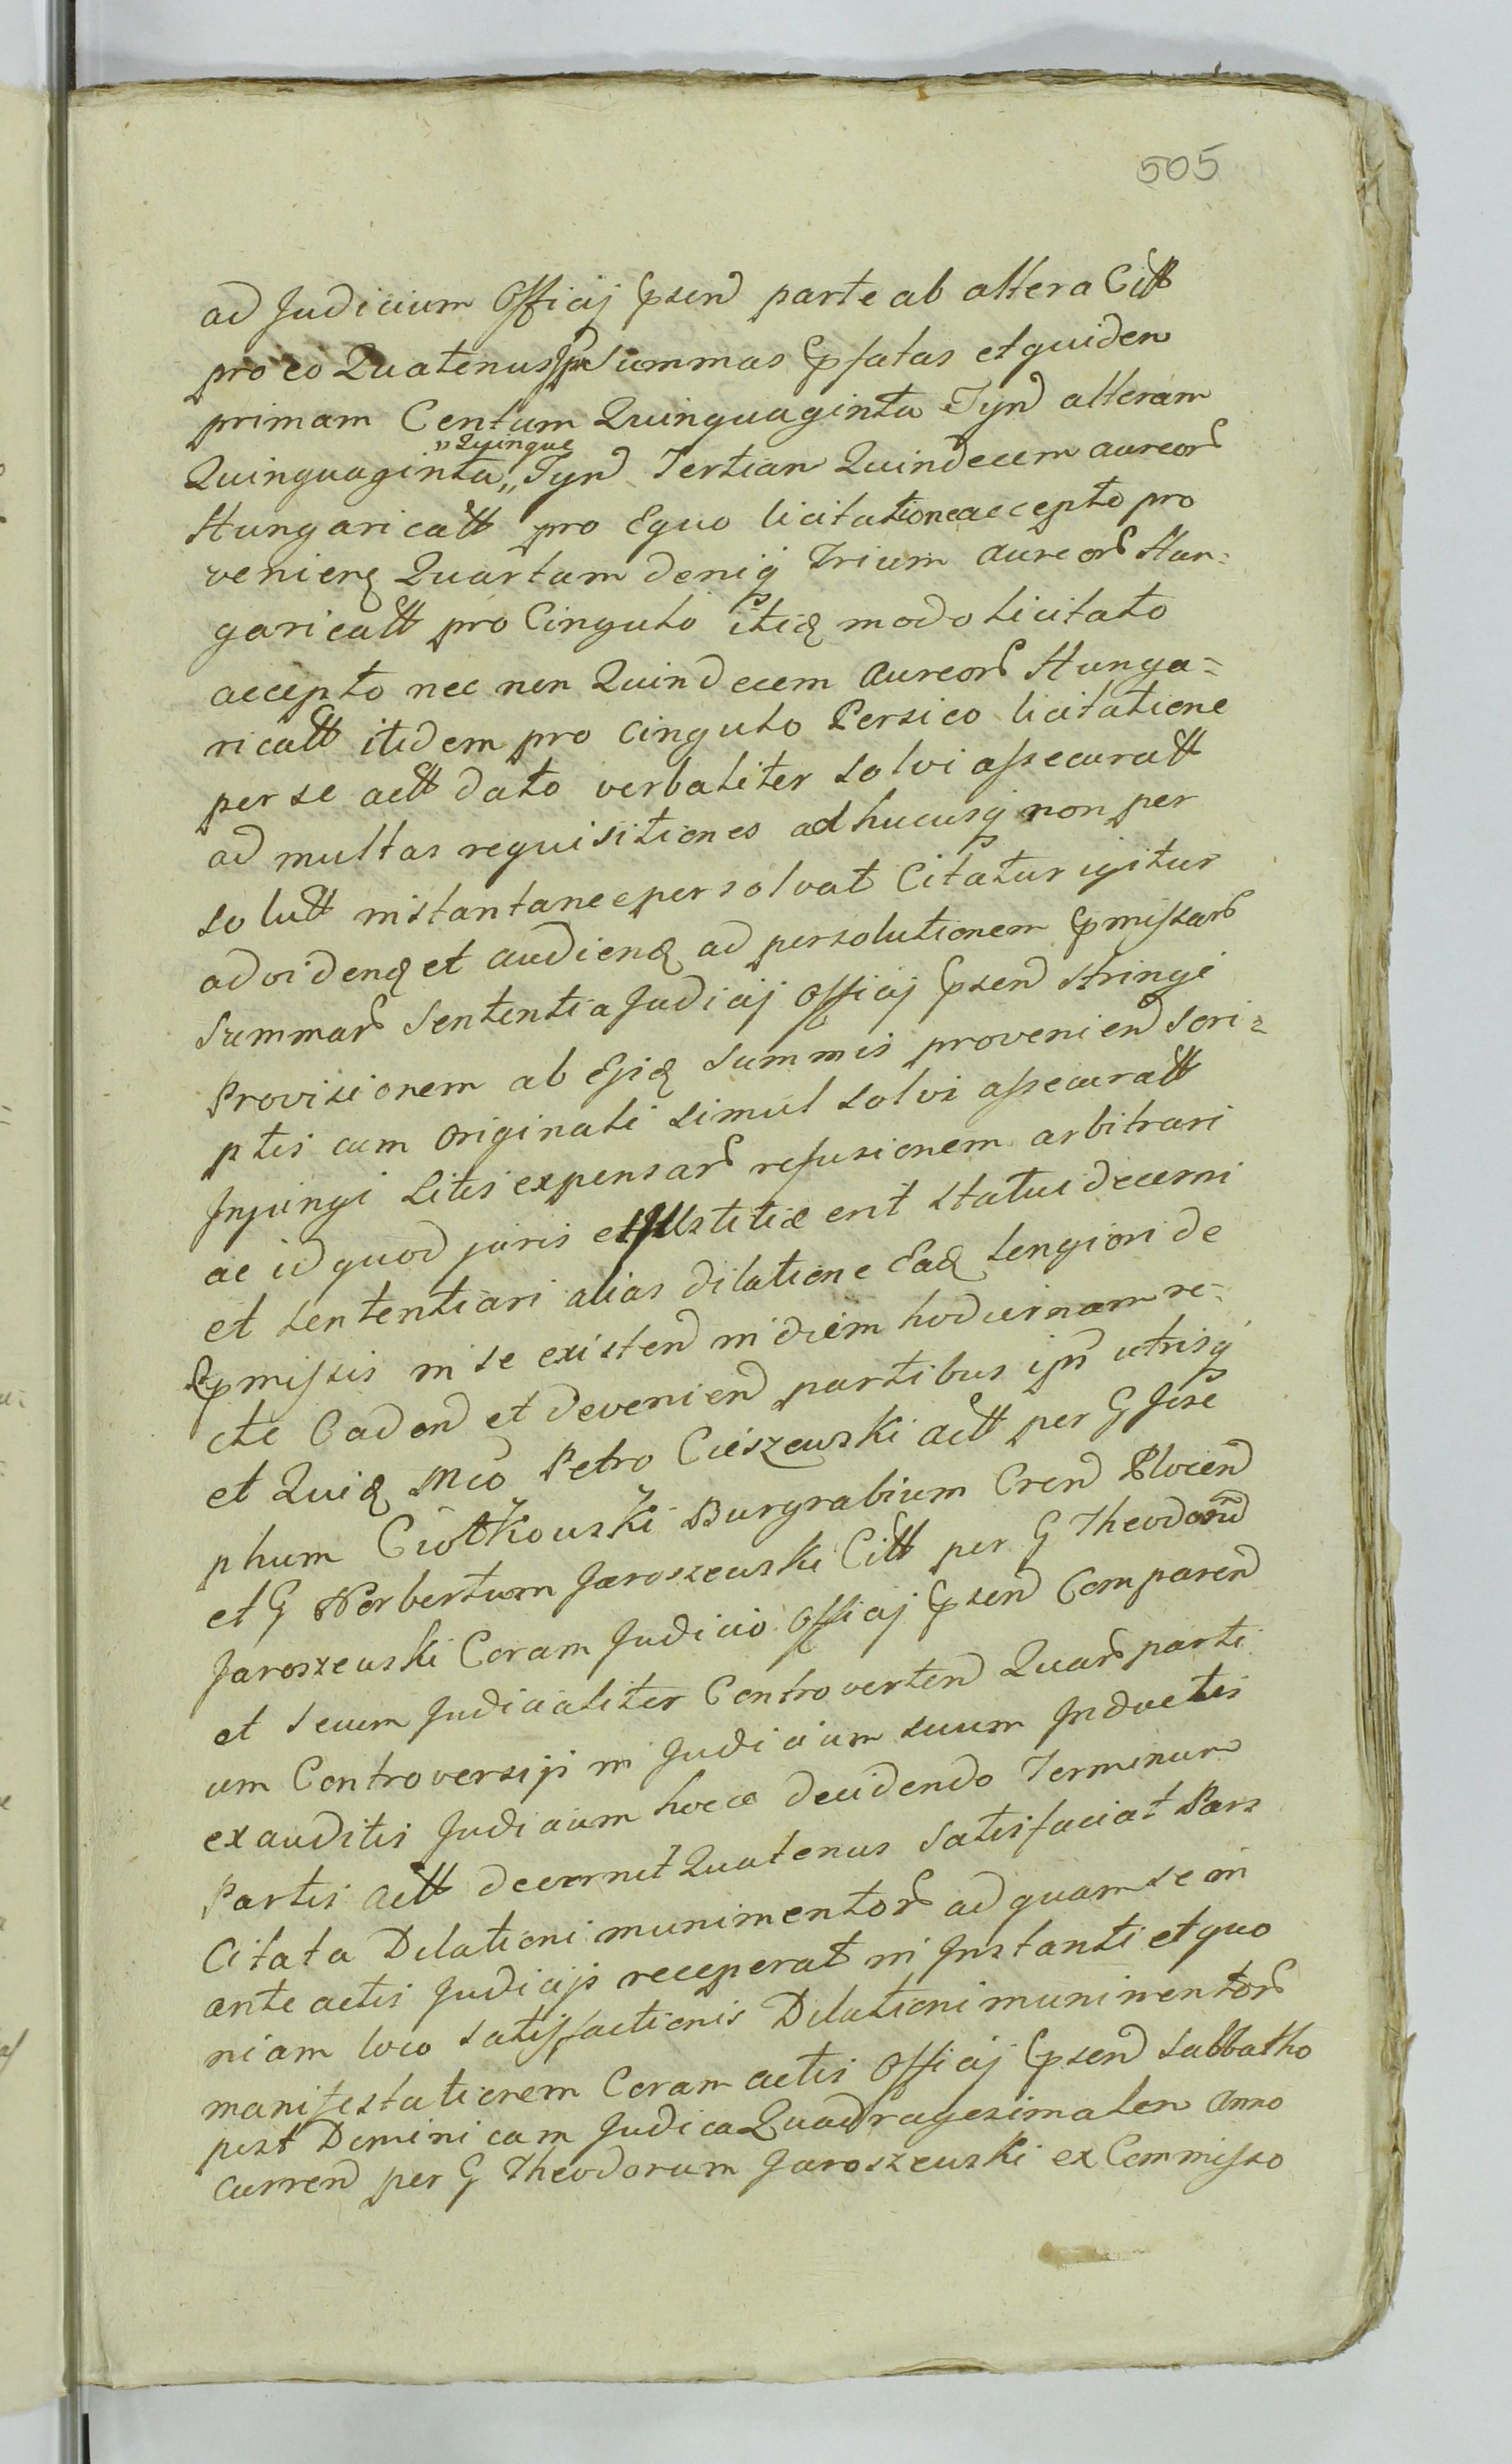 505
ad Judicium Officij pñsend parte ab altera Citt
pro eo Quatenus Summas pfatas et quidem
primam Centum Quinquaginta Tynf alteram
"Quinque
Quinquaginta „ Tynf Tertiam Quindecem aureor
Hungaricatt pro Equo licitatione accepto pro
venien Quartam deniq Trium aureor Hun-
garicatt pro Cingulo itid modo licitato
accepto nec non Quindecem Aureor Hunga-
ricatt itidem pro Cingulo Persico licitatione
per se actt dato verbaliter solvi assecuratt
ad multas requisitiones adhucusq non per
solutt instantanee persolvat Citatur igitur
ad viden et audien ad persolutionem pmissar
Summar Sententia Judicij Officij psend stringi
Provisionem ab Ejsd Summis provenien Scri-
ptis cum Originali simul solvi assecuratt
Injungi Litis expensar refusionem arbitrari
ac id quod juris et Justitiæ erit statui decerni
et sententiari alias dilatione Ead longiori de
pmissis in se existen in diem hodiernam re-
cte Caden et devenien partibus ijsd utrisq
et Quid Mco Petro Cieszewski actt per G Jose
phum Ciółkowski Burgrabium Cren Plocen
et G Norbertum Jaroszewski Citt per G Theodorum
Jaroszewski Coram Judicio Officij psend Comparen
et secum Judicialiter Controverten Quar parti
um Controversijs in Judicium suum Inductis
exauditis Judicium hocce decidendo Terminum
Partis actt decernit Quatenus satisfaciat Pars
Citata Dilationi munimentor ad quam se in
ante actis Judicijs receperat in Instanti et quo
niam loco satisfactionis Dilationi munimentor
manifestationem Coram actis Officij psend Sabbatho
post Dominicam Judica Quadragesimalem Anno
curren per G Theodorum Jaroszewski ex Commisso